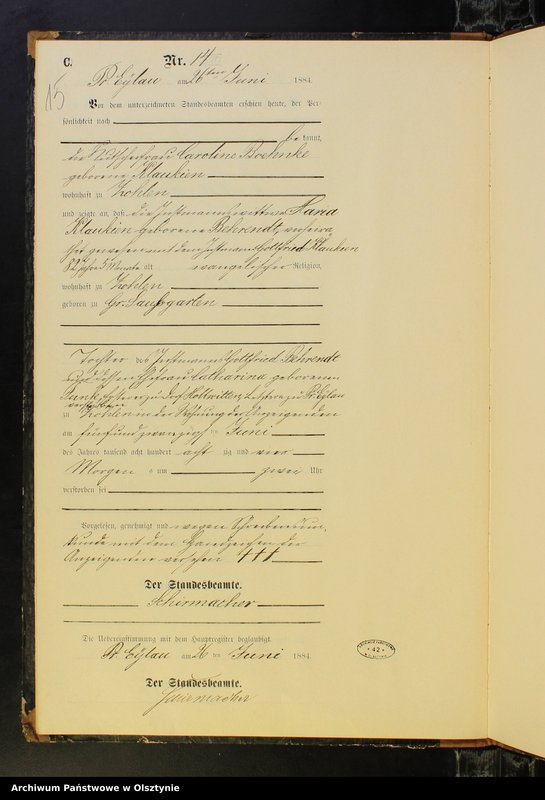 C.
Nr. 14
15
Pr. Eylau am 26ten Juni 1884.
Vor dem unterzeichneten Standesbeamten erschien heute, der Per-
sönlichkeit nach
be kannt,
die Caroline Boehnke
geborene Klaukien
wohnhaft zu Kohlen
und zeigte an, daß die Wittwe Maria
Klaukien geborene Behrendt,
gewesen mit dem Instmann Gottfried Klaukien
82 Jahre 5 Monate alt evangelischer Religion,
wohnhaft zu Kohlen
geboren zu Gr.
Tochter des Instmanns Gottfried Behrendt
und dessen Ehefrau Catharina geborenen
zu Pr. Eylau
zu Kohlen in der Wohnung der Anzeigenden
am fünfundzwanzigsten Juni
des Jahres tausend acht hundert acht zig und vier
Morgens um zwei Uhr
verstorben sei
Vorgelesen, genehmigt und wegen Schreibensun-
kunde mit dem Handzeichen der
Anzeigenden versehen +++
Der Standesbeamte.
Schirmacher
Die Uebereinstimmung mit dem Hauptregister beglaubigt.
Pr. Eylau am 26 ten Juni 1884.
Der Standesbeamte.
Schirmacher
42
Archiwum Państwowe w Olsztynie